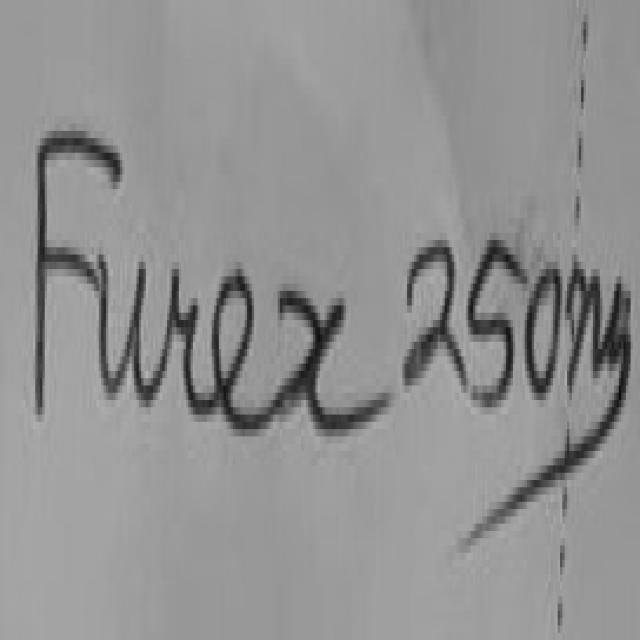 Furex 250mg